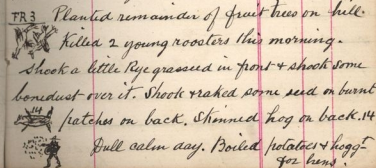 FR 3 Planted remainder of fruit trees on hill.
Killed 2 young roosters this morning.
Shook a little Rye grasseed in front & shook some
bonedust over it. Shook & raked some seed on burnt
patches on back. Skinned hog on back. 14
Dull calm day. Boiled potatoes & hogg
for hens.